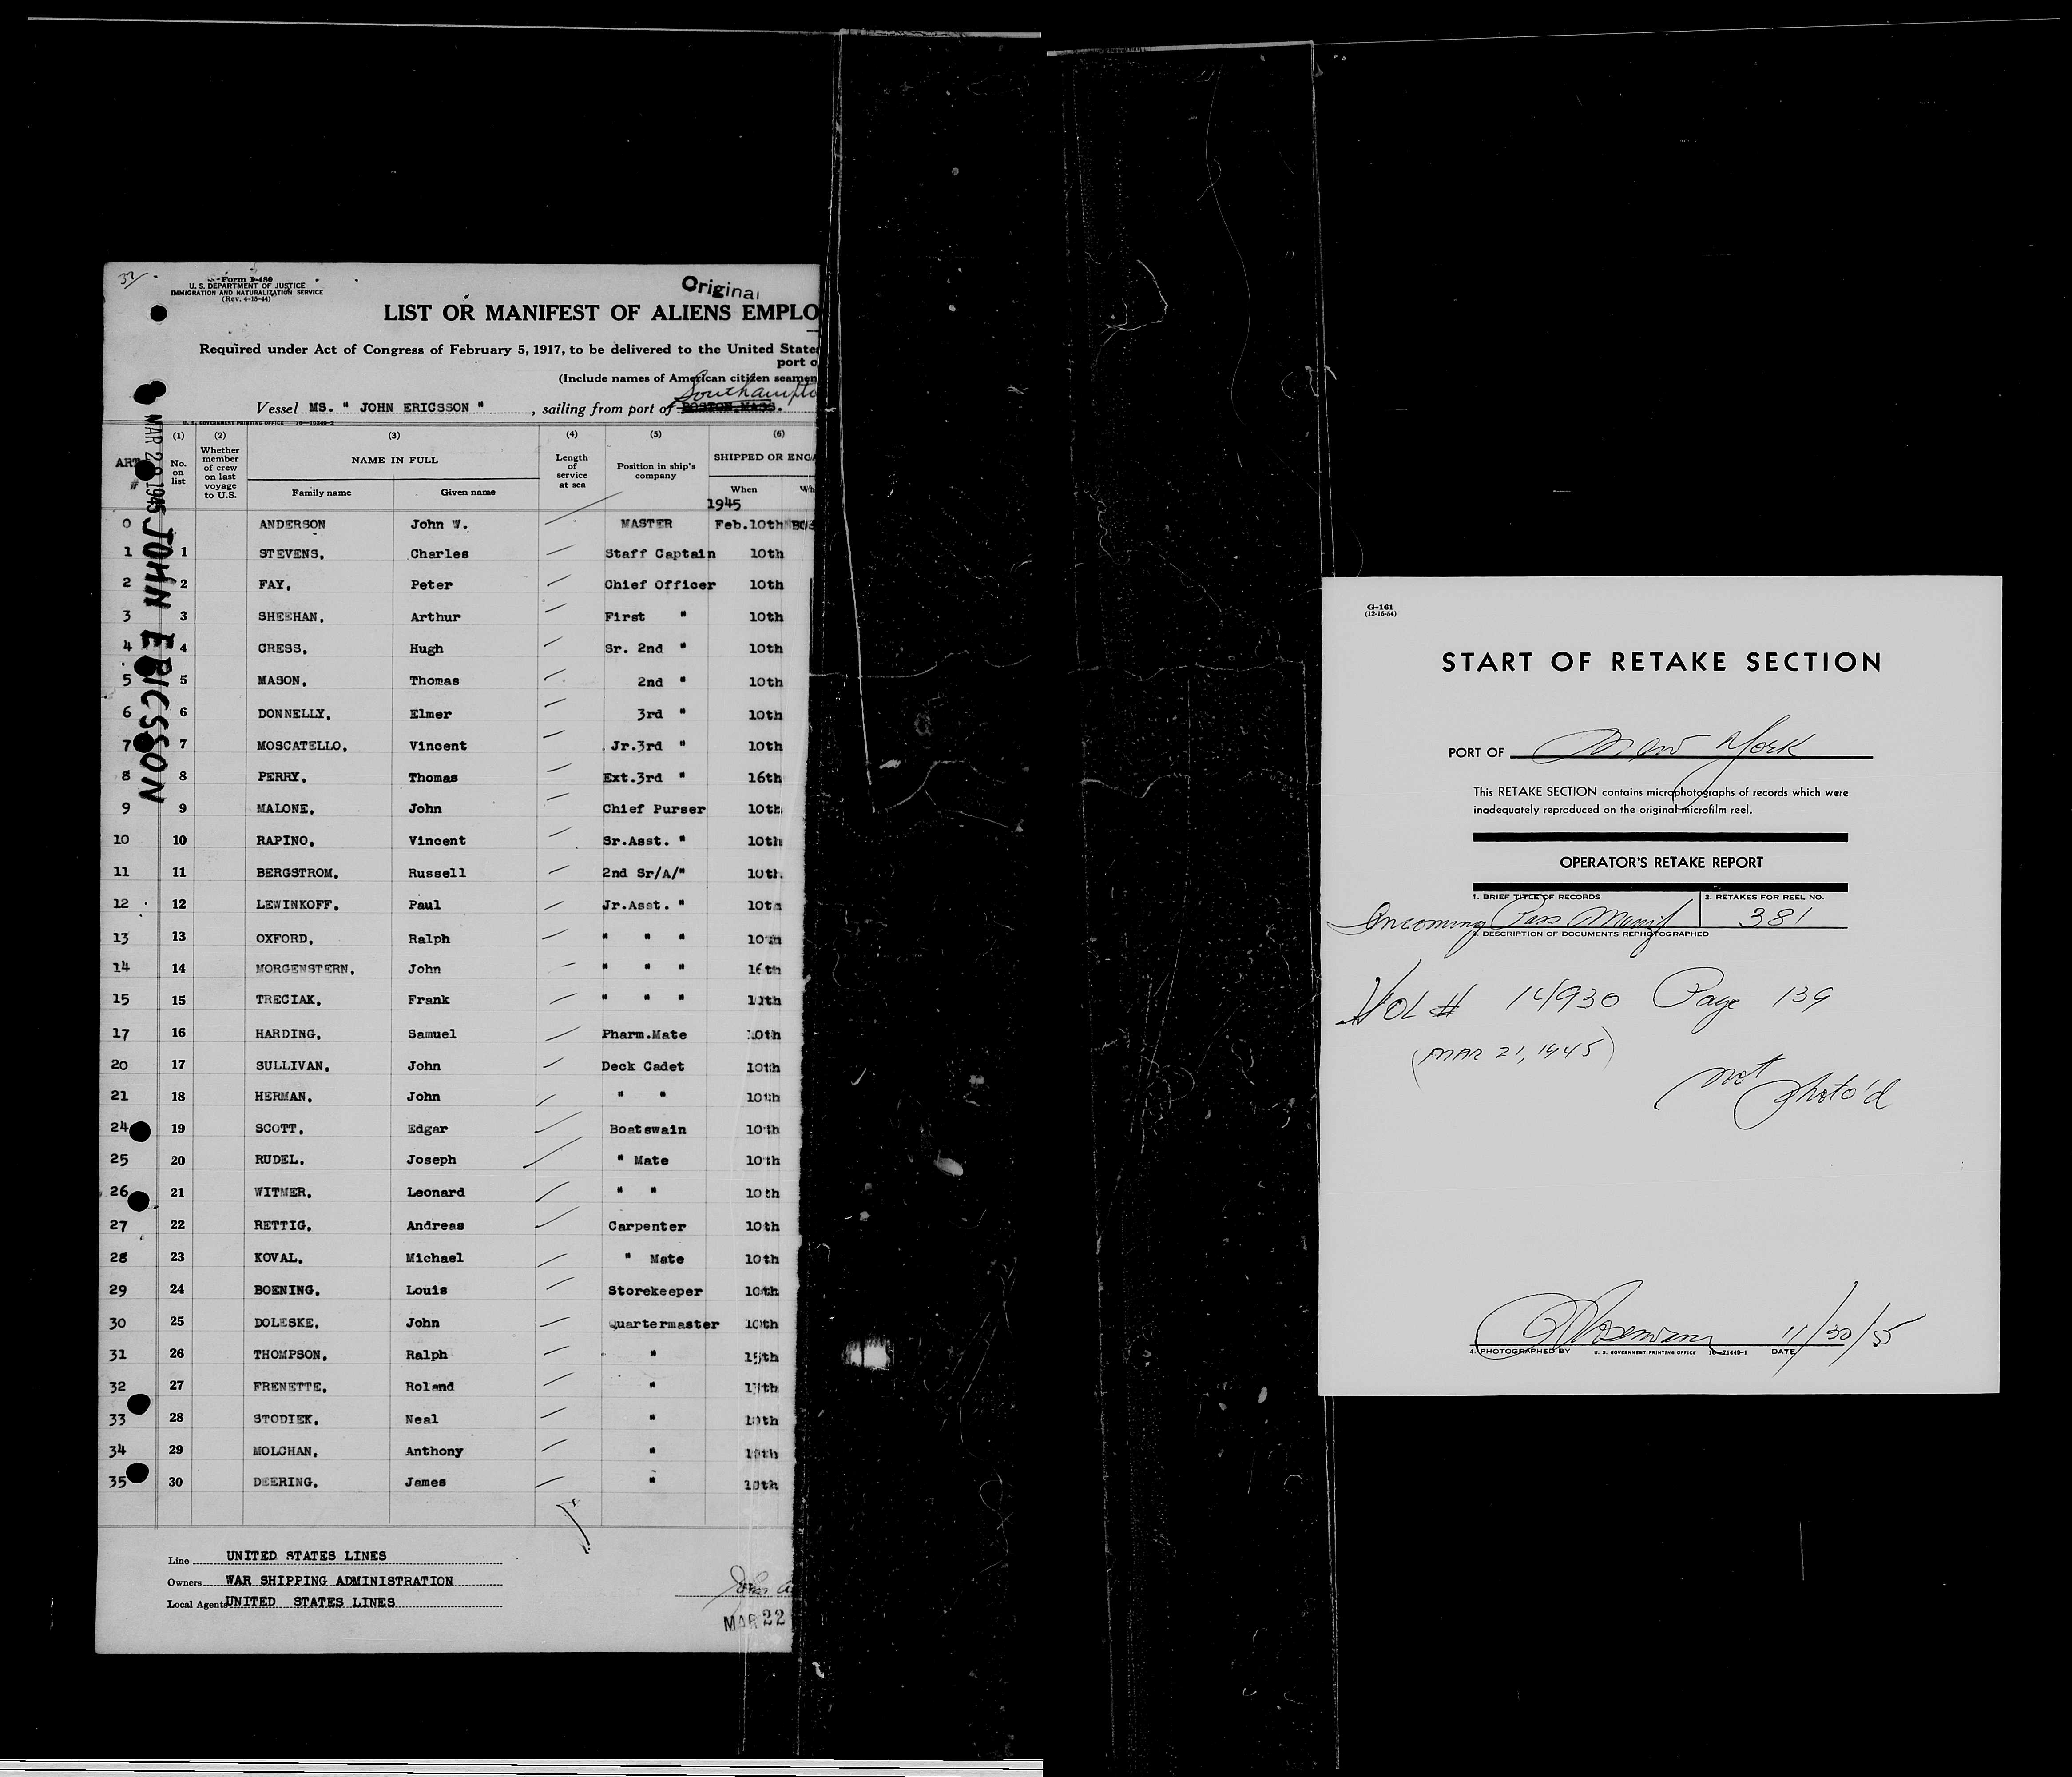 37
Form I-480
U. S. DEPARTMENT OF JUSTICE
IMMIGRATION AND NATURALIZATION SERVICE
(Rev. 4-15-44)
Original
LIST OR MANIFEST OF ALIENS EMPLO
Required under Act of Congress of February 5, 1917, to be delivered to the United State
port o
(Include names of American citizen seamen
Southampto
Vessel MS. " JOHN ERICSSON " , sailing from port of BOSTON.MASS.
U. S. GOVERNMENT PRINTING OFFICE
(1) (2) (3) (4) (5) (6)
ART # No. on list Whether member of crew on last voyage to U.S. NAME IN FULL Length of service at sea Position in ship's company SHIPPED OR ENGA
Family name Given name When Wh
1945
0 ANDERSON John W. MASTER Feb.10th BOS
1 1 STEVENS. Charles Staff Captain 10th
2 2 FAY. Peter Chief Officer 10th
3 3 SHEEHAN. Arthur First " 10th
4 4 CRESS. Hugh Sr. 2nd " 10th
5 5 MASON. Thomas 2nd " 10th
6 6 DONNELLY. Elmer 3rd " 10th
7 7 MOSCATELLO. Vincent Jr.3rd " 10th
8 8 PERRY. Thomas Ext.3rd " 16th
9 9 MALONE. John Chief Purser 10th
10 10 RAPINO. Vincent Sr.Asst. " 10th
11 11 BERGSTROM. Russell 2nd Sr/A/" 10th
12 12 LEWINKOFF. Paul Jr.Asst. " 10th
13 13 OXFORD. Ralph " " " 10th
14 14 MORGENSTERN. John " " " 16th
15 15 TRECIAK. Frank " " "
17 16 HARDING. Samuel Pharm.Mate 10th
20 17 SULLIVAN. John Deck Cadet 10th
21 18 HERMAN. John " " 10th
24 19 SCOTT. Edgar Boatswain 10th
25 20 RUDEL. Joseph " Mate 10th
26 21 WITMER. Leonard " " 10th
27 22 RETTIG. Andreas Carpenter 10th
28 23 KOVAL. Michael " Mate 10th
29 24 BOENING. Louis Storekeeper 10th
30 25 DOLESKE. John Quartermaster 10th
31 26 THOMPSON. Ralph " 15th
32 27 FRENETTE. Roland "
33 28 STODIEK. Neal " 10th
34 29 MOLCHAN. Anthony "
35 30 DEERING. James " 10th
MAR 1945 JOHN ERICSSON
Line UNITED STATES LINES
Owners WAR SHIPPING ADMINISTRATION
Local Agents UNITED STATES LINES
MAR 22
G-161
(12-15-54)
START OF RETAKE SECTION
PORT OF New York
This RETAKE SECTION contains microphotographs of records which were
inadequately reproduced on the original microfilm reel.
OPERATOR'S RETAKE REPORT
1. BRIEF TITLE OF RECORDS 2. RETAKES FOR REEL NO.
Incoming Pass Manif 381
3. DESCRIPTION OF DOCUMENTS REPHOTOGRAPHED
Vol # 14930 Page 139
(MAR 21, 1945)
not
photo'd
11/30/55
4. PHOTOGRAPHED BY U. S. GOVERNMENT PRINTING OFFICE 16-71449-1 DATE